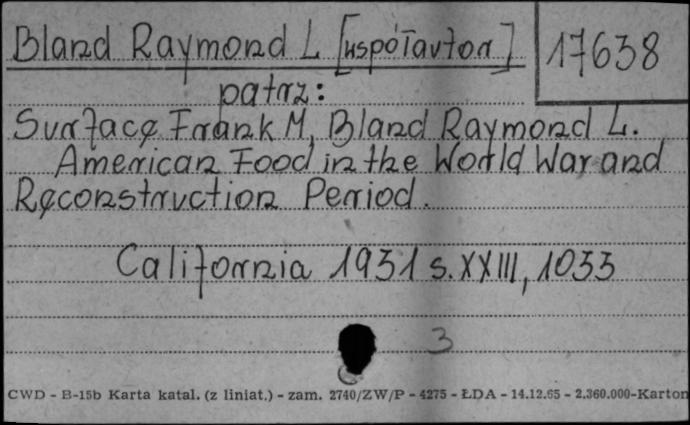 Bland Raymond L [współautor]
17638
patrz:
Surface Frank M, Bland Raymond L.
American Food in the World War and
Reconstruction Period.
California 1931 s. XXIII, 1033
3
CWD - B-15b Karta katal. (z liniat.) - zam. 2740/ZW/P - 4275 - ŁDA - 14.12.65 - 2.360.000-Karton